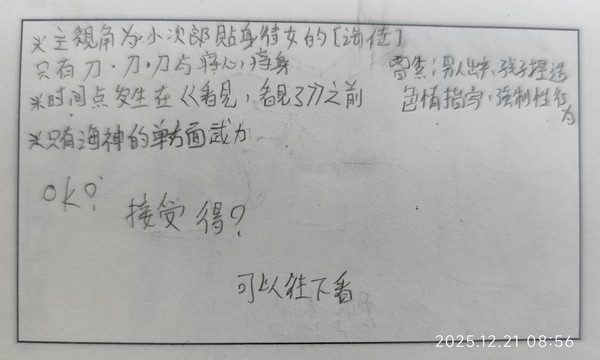 ※主視角为小次郎貼身侍女的[海佳]
只有刀·刀·刀与痛心,痛身
※时间点发生在《看見,看見了》之前
※只有海神的单方面武力
雷焦:男人出声,孩子捏造
色情指字,强制性行
为
OK?
接受得?
可以往下看
2025.12.21 08:56